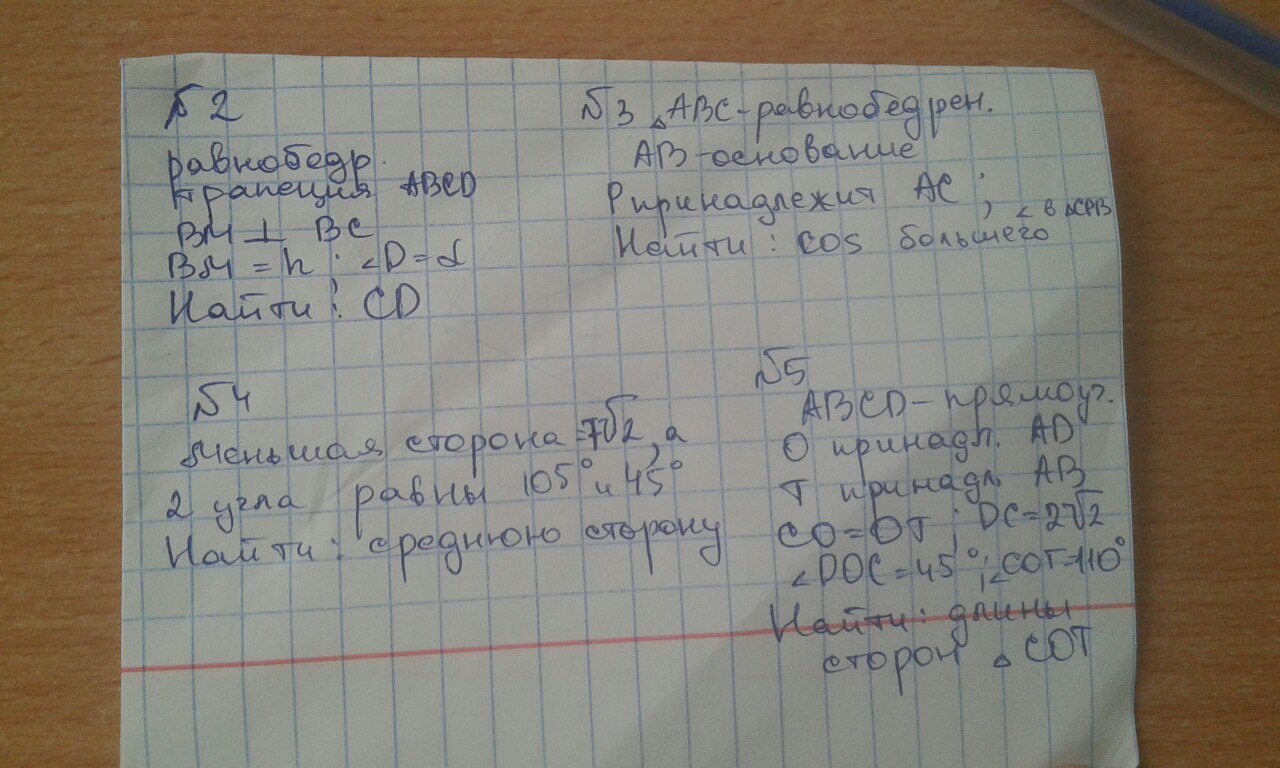 №2
равнобедр.
трапеция ABCD
BM ⊥ BC
BM = h ; ∠D = α
Найти: CD
№3 △ABC - равнобедрен.
AB - основание
P принадлежит AC ;
Найти: cos большего ∠ в △CPB
№4
меньшая сторона = 7√2, а
2 угла равны 105° и 45°
Найти: среднюю сторону
№5
ABCD - прямоуг.
O принадл. AD
T принадл AB
CO = OT ; DC = 2√2
∠DOC = 45° ; ∠COT = 110°
Найти: длины
сторон △ COT